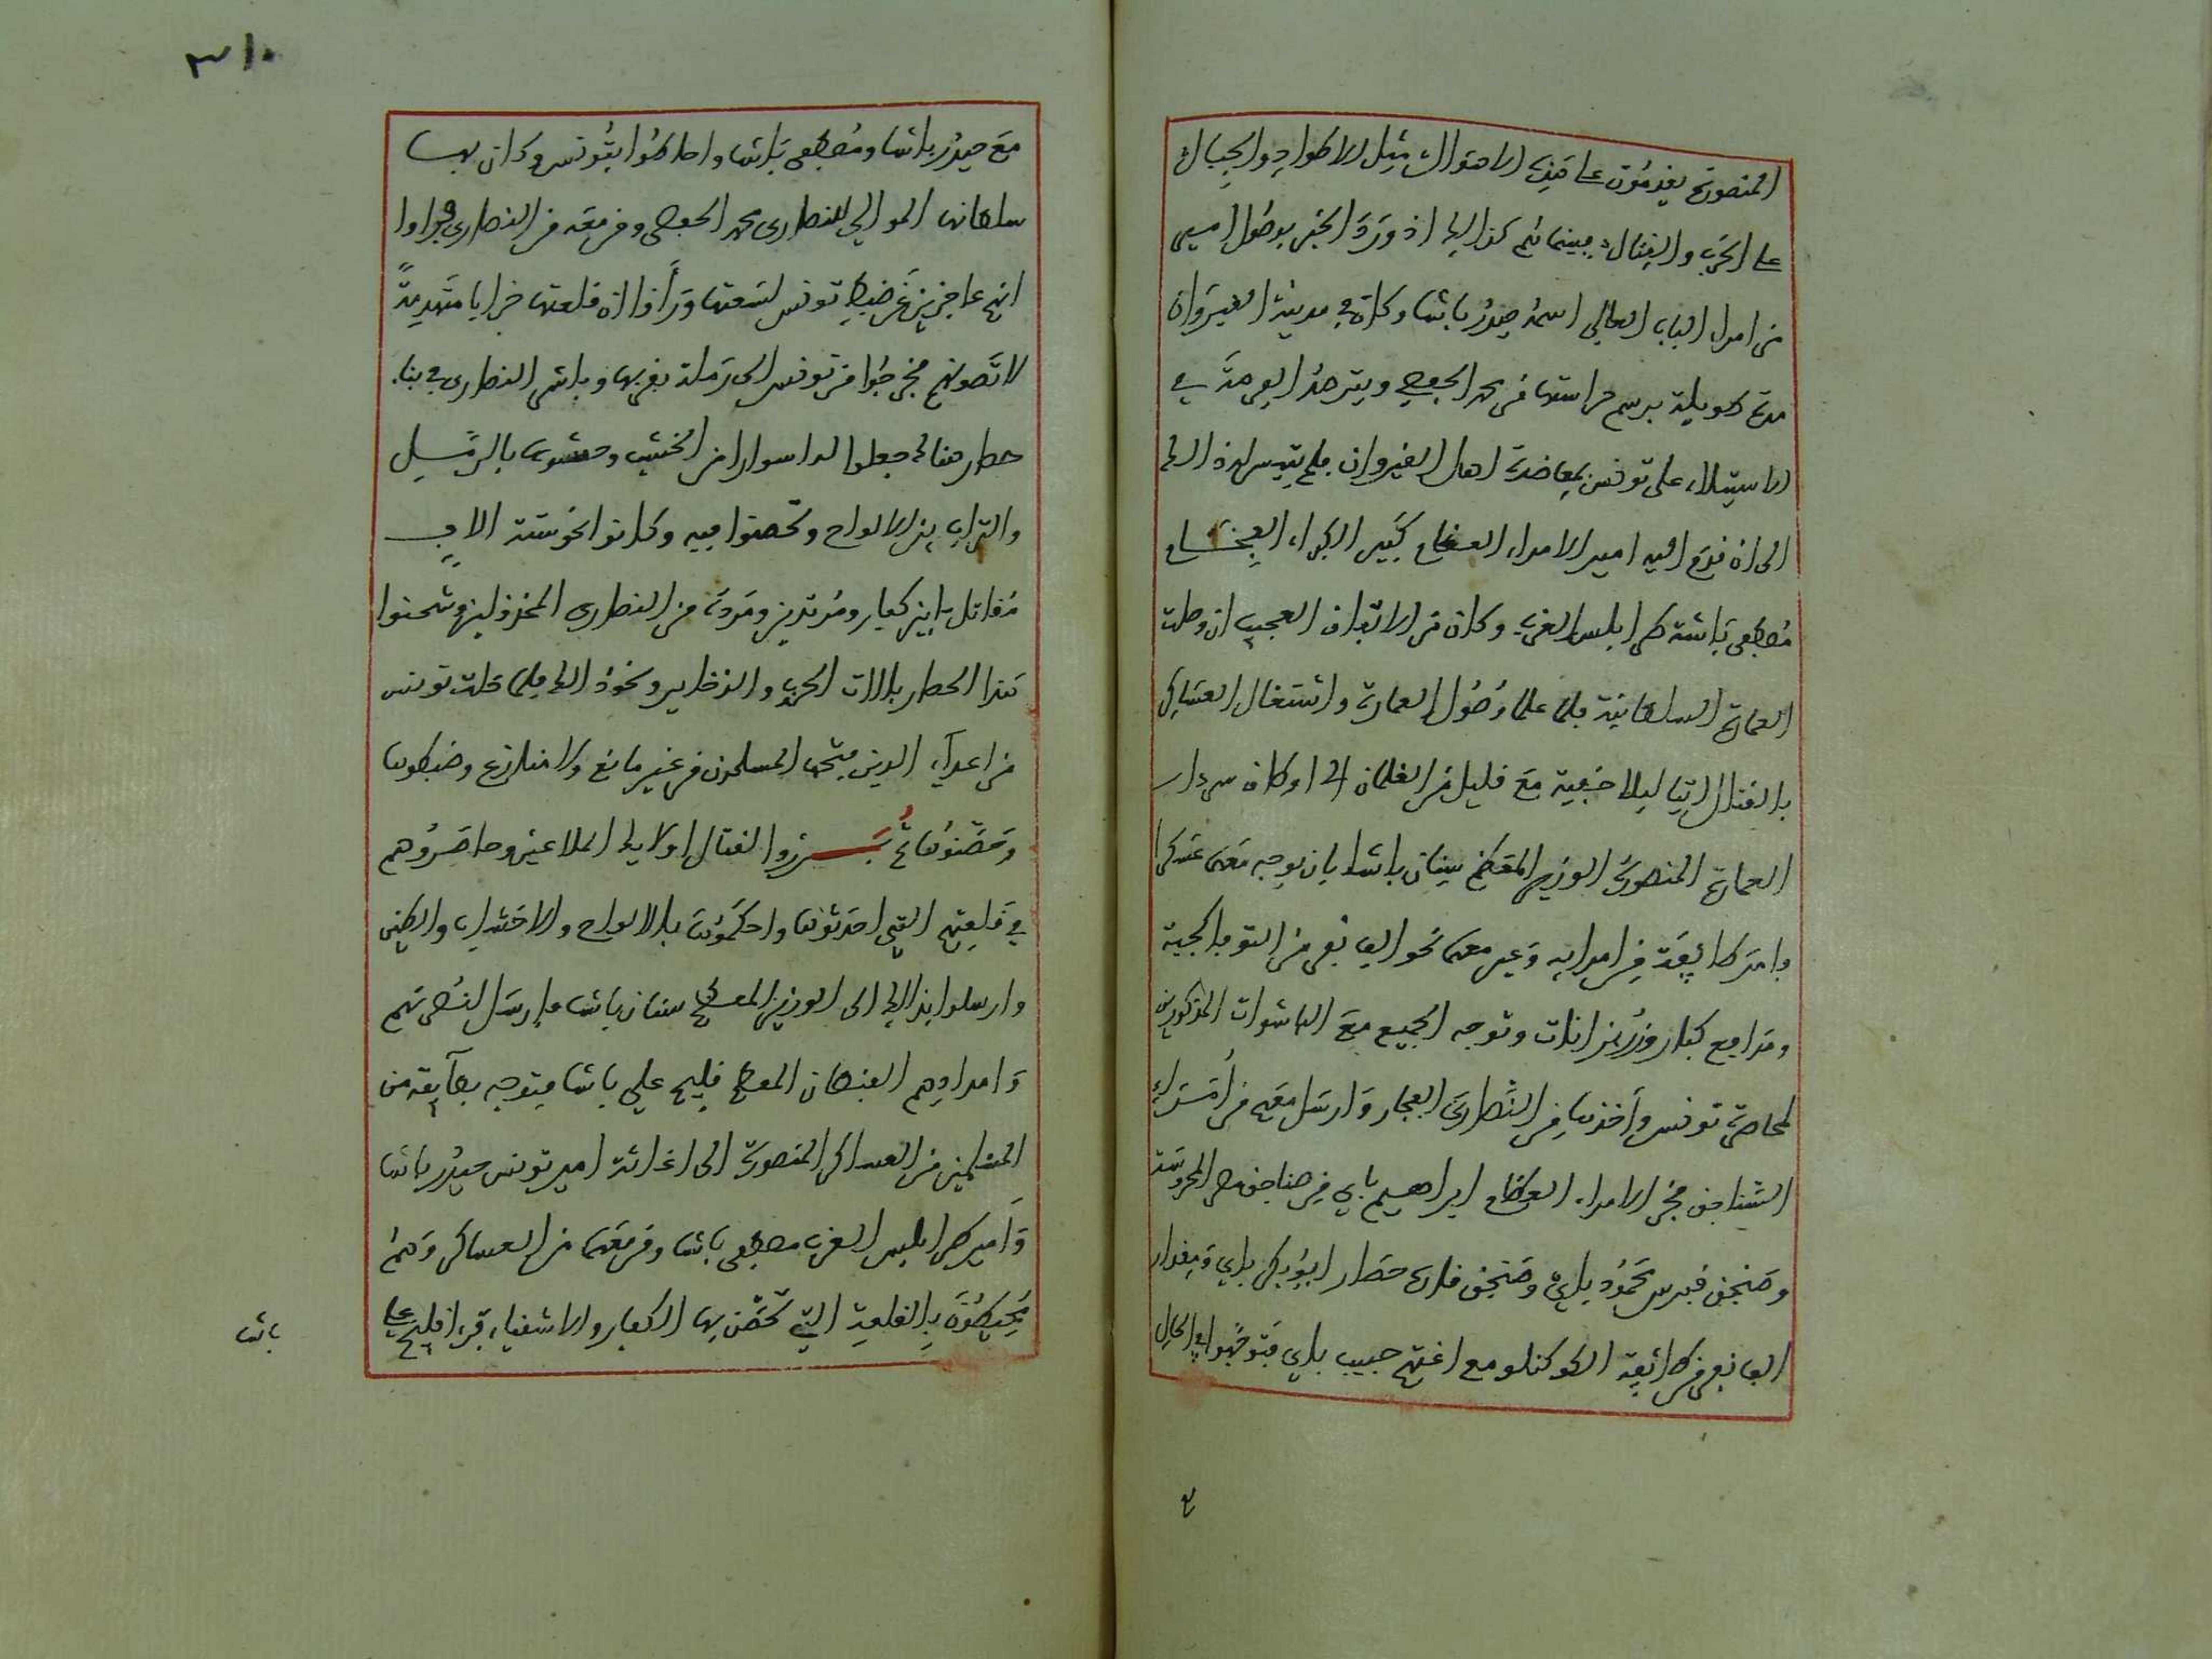 المنصورة يقدمون على هذه الاهوال مثل الاطواد والجبال
على الحرب والقتال فبينما هم كذلك اذ ورد الخبر بوصول امير
من امراء الباب العالي اسمه حيدر باشا وكان في مدينة القيروان
مدة طويلة برسم حراستها من محمد الحفصي ويترصد الفرصة في
الاستيلاء على تونس بمعاضدة اهل القيروان فلم يتيسر له ذلك
الى ان قدم اليه امير الامراء العظام كبير الكبراء الفخام
مصطفى باشة طرابلس الغرب وكان من الاتفاق العجيب ان وصلت
العمارة السلطانية فلما علما وصول العمارة واشتغال العساكر
بالقتال اتيا ليلا خفية مع قليل من الغلمان الى اوطاق سردار
العمارة المنصورة الوزير المعظم سنان باشا بان يوجه معهما عسكرا
وامر طايفة من امرايه وعين معهما نحو الف نفر من التوفاكجية
ومدافع كبار وزربزانات وتوجه الجميع مع الباشوات المذكورين
لمحاصرة تونس واخذها من النصارى الفجار وارسل معهم من امراء
السناجق فخر الامراء العظام ابراهيم باي من صناجق مصر المحروسة
وصنجق قبرس محمود باي وصنجق قاره حصار ابو بكر باي ومقدار
الف نفر من طائفة الكوكللو مع اغتهم حبيب باي فتوجهوا في الحال
٣١٠
مع حيدر باشا ومصطفى باشا واحاطوا بتونس وكان بها
سلطانها الموالي للنصارى محمد الحفصي ومن معه من النصارى فراوا
انهم عاجزين عن ضبط تونس لسعتها وراوا ان قلعتها خرابا متهدمة
لا تصونهم فخرجوا من تونس الى رملة بقربها وباشر النصارى في بناء
حصار هناك جعلوا له اسوارا من الخشب وحشوها بالرمل
والتراب بين الالواح وتحصنوا فيه وكانوا نحو ستة الاف
مقاتل ما بين كفار ومرتدين ومردة من النصارى المخذولين وشحنوا
هذا الحصار بالات الحرب والذخاير ونحو ذلك فلما خلت تونس
من اعداء الدين فتحها المسلمون من غير مانع ولا منازع وضبطوها
وحصنوها ثم برزوا لقتال اولايك الملاعين وحاصروهم
في قلعتهم التي احدثوها واحكموها بالالواح والاخشاب والطين
وارسلوا بذلك الى الوزير المعظم سنان باشا فارسل لنصرتهم
وامدادهم القبطان المعظم قليج علي باشا فتوجه بطآيفة من
المسلمين من العساكر المنصورة الى اغاثة امير تونس حيدر باشا
وامير طرابلس الغرب مصطفى باشا ومن معهما من العساكر وهم
محيطون بالقلعة التي تحصن بها الكفار والاشقياء فرءا قليج علي
باشا